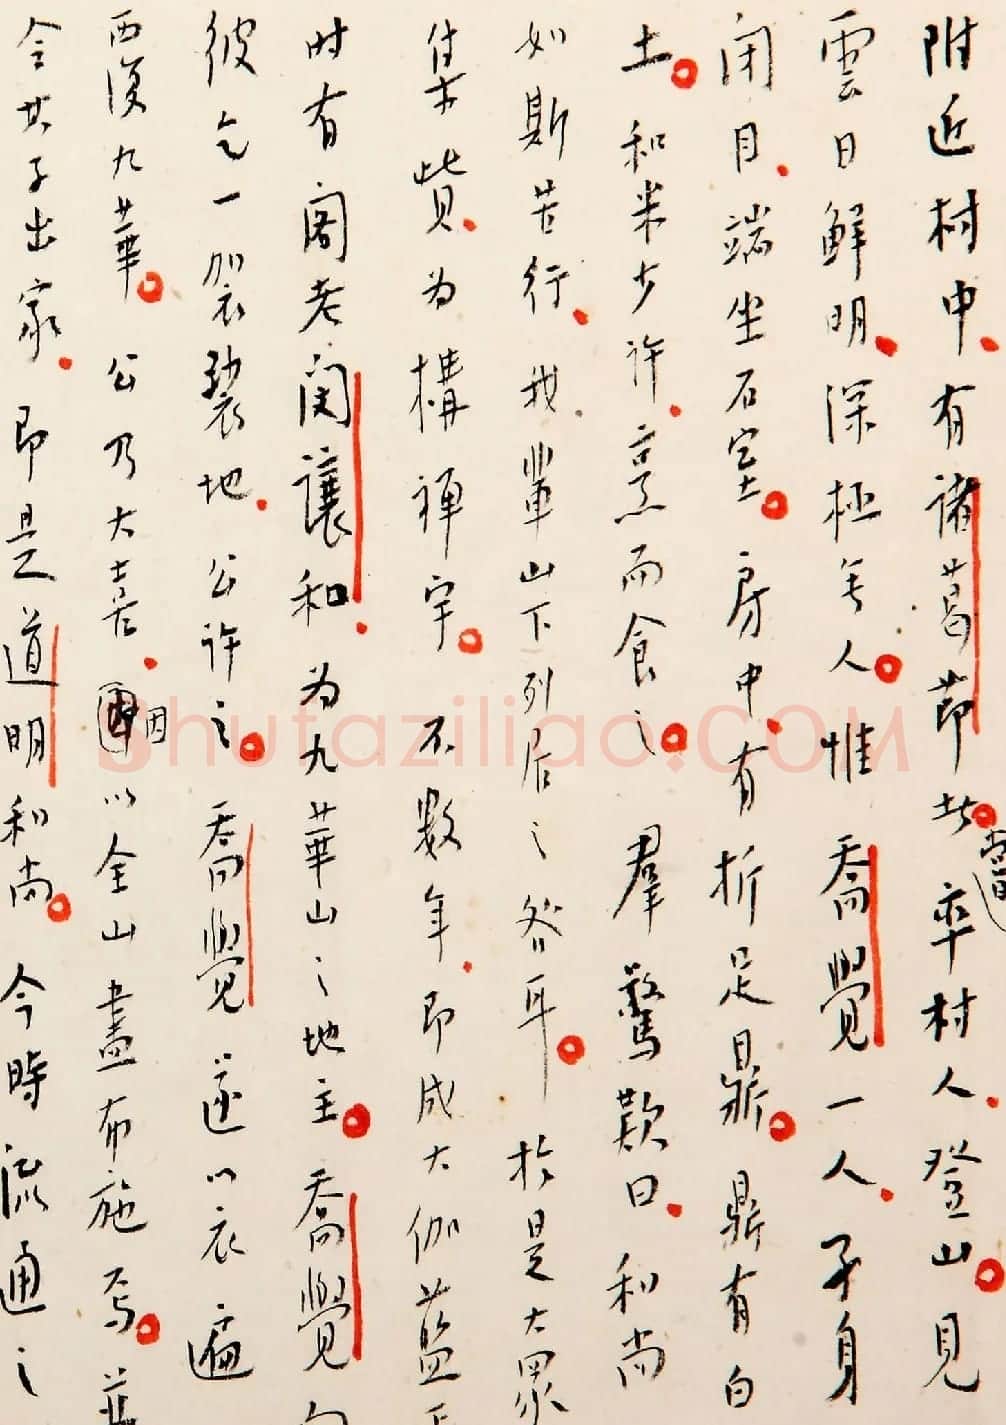 附近村中有諸葛節者嘗率村人登山見
雲日鮮明深極无人惟喬覺一人孑身
闭目端坐石室房中有折足鼎鼎有白
土和米少许烹而食之羣驚歎曰和尚
如斯苦行我輩山下列居之咎耳於是大眾
集資为構禅宇不数年即成大伽藍
时有阁老闵讓和为九華山之地主喬覺
彼乞一袈裟地公许之喬覺遂以衣遍
西復九華公乃大喜因以全山盡布施焉並
令其子出家即是道明和尚今時流通之
Shufaziliao.COM